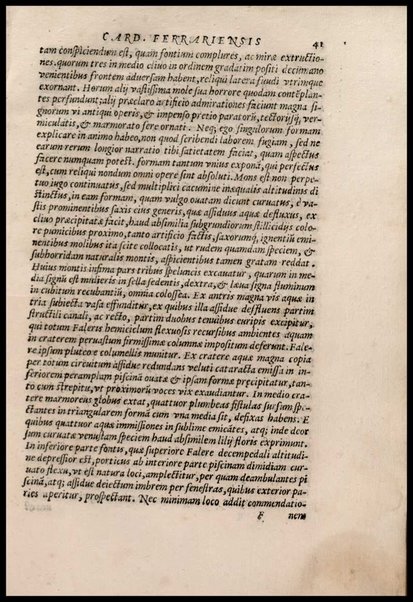 CARD. FERRARIENSIS 41
tam conspiciendum est, quam fontium complures, ac miræ extructio-
nes. quorum tres in medio cliuo in ordinem gradatim positi decumano
venientibus frontem aduersam habent, reliqui latera suudi vtrinque
exornant. Horum alij vastissima mole sua horrore quodam contēplan-
tes perfundunt; alij præclaro artificio admirationes faciunt magna si-
gnorum vi antiqui operis, & impenso pretio paratorū, tectorijsq́; ver-
miculatis, & marmorato ferè ornati. Neq; ego singulorum formam
explicare in animo habeo, non quod scribendi laborem fugiam, sed ne
earum rerum longior narratio tibi satietatem faciat, quam aspectus
facere numquam potest. formam tantum vnius exponā, qui perfectus
est, cum reliqui nondum omni opere sint absoluti. Mons est non perpe-
tuo iugo continuatus, sed multiplici cacumine inæqualis altitudinis di
stinctus, in eam formam, quam vulgo ouatam dicunt curuatus, è va-
stis prominentibus saxis eius generis, quæ assiduus aquæ defluxus, ex
cliuo præcipitatæ facit, haud absimilia subgrundiorum stillicidijs colo-
re pumicibus proximo, tanto artificio factis, saxorumq́; ignentiū emi-
nentibus molibus ita scite collocatis, ut rudem quamdam speciem, &
subhorridam naturalis montis, aspicientibus tamen gratam reddat.
Huius montis infima pars tribus speluncis excauatur, quarum in me-
dia signū est mulieris in sella sedentis, dextra, & læua signa fluminum
in cubitum recubantiū, omnia colossea. Ex antris magna vis aquæ in
tria subiecta vasa effunditur, ex quibus illa assidue defluens partim
structili canali, ac recto, partim duobus tenuibus euripis excipitur,
qui totum Faleris hemicielum flexuosis recursibus ambientes aquam
in craterem peruastum firmissimæ columnæ impositum deferunt. Fale-
re ipsum pluteoæ columellis munitur. Ex cratere aquæ magna copia
per totum circuitum assidue redundans veluti cataracta emissa in in-
feriorem peramplam piscinā ouatæ & ipsam formæ præcipitatur, tan-
to cum strepitu, vt proximorū voces vix exaudiantur. In medio cra-
tere marmoreus globus extat, quattuor plumbeas fistulas sursum spe-
ctantes in triangularem formā cum vna media sit, defixas habens. E
quibus quattuor aquæ immissiones in sublime emicātes, atq; inde deor
sum curuatæ venustam speciem haud absimilem lilij floris exprimunt.
In inferiore parte fontis, quæ superiore Falere decempedali altitudi-
ne depressior est, porticus ab interiore parte piscinam dimidiam cur-
uato flexu, vt est natura loci, amplectitur, per quam deambulantes pi
scinā, atq; assidue deiectum imbrem per fenestras, quibus exterior pa-
ries aperitur, prospectant. Nec minimam loco addit commendatio-
F nem